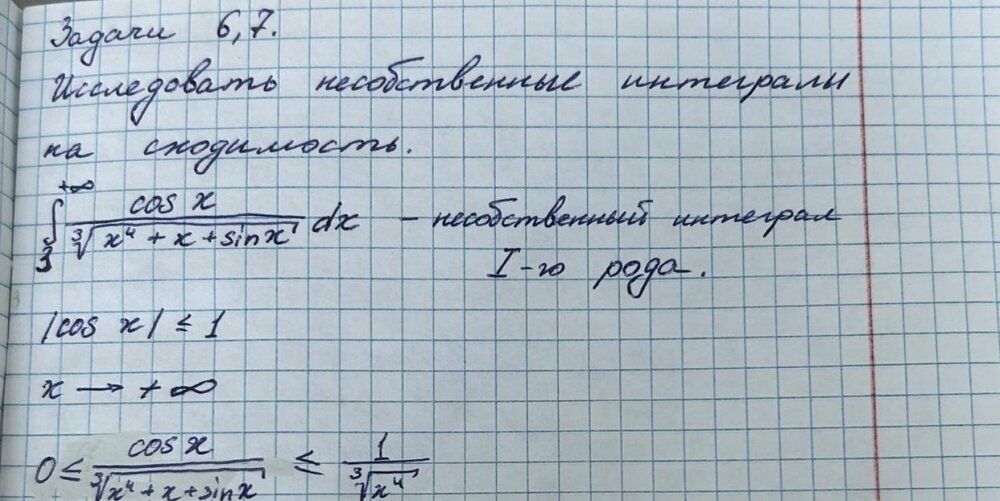 Задачи 6,7.
Исследовать несобственные интегралы
на сходимость.
∫₃^{+∞} cos x / ∛(x⁴ + x + sin x) dx – несобственный интеграл
I-го рода.
|cos x| ≤ 1
x → +∞
0 ≤ cos x / ∛(x⁴ + x + sin x) ≤ 1 / ∛(x⁴)